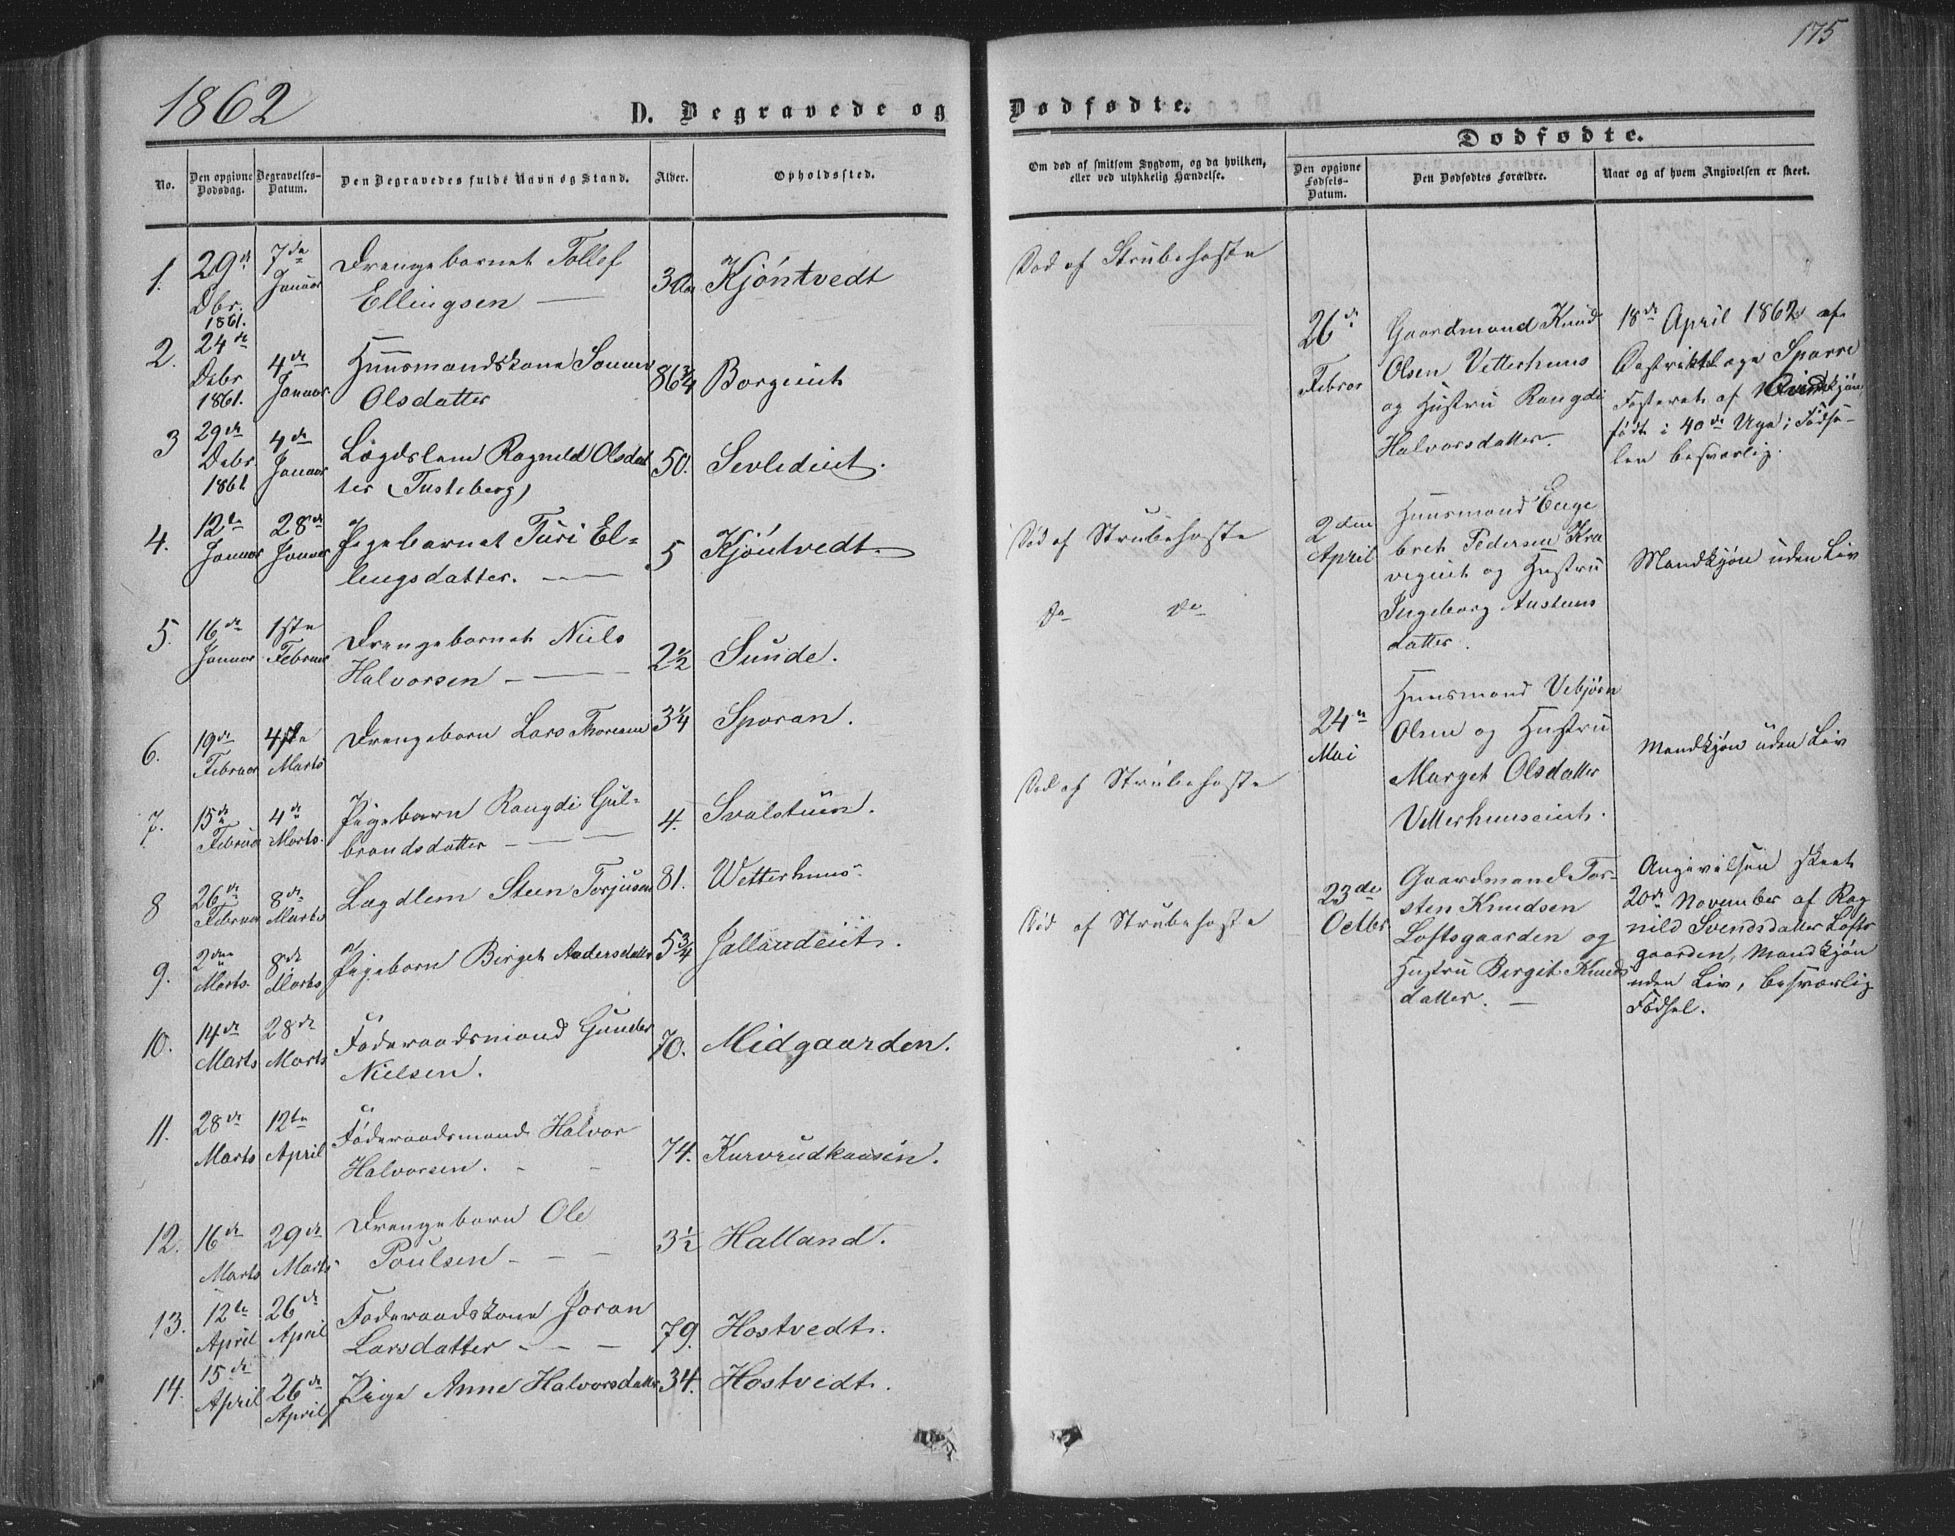 175
1862
D. Begravede og Dødfødte.
Dødfødte.
No.
Den opgivne Dødsdag.
Begravelses-Datum.
Den Begravedes fulde Navn og Stand.
Alder.
Opholdssted.
Om død af smitsom Sygdom, og da hvilken,
eller ved ulykkelig Hændelse.
Den opgivne Fødsels-Datum.
Den Dødfødtes Forældre.
Naar og af hvem Angivelsen er skeet.
1. 29de Dbr. 1861. 7da Januar Drengebarnet Tollef
Ellingsen — 3 Aar Kjöntvedt
Död af Strubehoste
2. 24de Debr 1861. 4de Januar Huusmandskone
Olsdatter 86 3/4 Borgeiet
3 29de Debr. 1861 4de Januar Lægdslem Ragnild Olsdat
ter (Tusteberg) 50. Sevledeiet.
4. 12te Januar 28de Januar Pigebarnet Turi El=
lingsdatter. — 5 Kjöntvedt.
Död af Strubehoste
5. 16de Januar 1ste Februar Drengebarnet Niels
Halvorsen — 2 1/2 Sunde.
Do Do
6. 19de Februar 4de Marts Drengebarn Lars 3 1/4 Sporan.
7. 15de Februar 4de Marts. Pigebarn Rangdi Gul=
brandsdatter — 4. Svalstuen.
Död af Strubehoste
8 26de Februar 8de Marts Lægdlem Steen Torjusen 81. Wetterhuus
9. 2den Marts 8de Marts Pigebarn Birget Andersdatter 5 3/4 Jallandeiet.
Död af Strubehoste
10. 14de Marts 28de Marts Föderaadsmand Gunder
Nielsen. 70. Midgaarden.
11. 28de Marts 12te April Föderaadsmand Halvor
Halvorsen. 74. Kurvrudkaasen.
12. 16de Marts 29de Marts Drengebarn Ole
Poulsen — 3 1/2 Halland.
13. 12te April 26de April Föderaadskone Joran
Larsdatter — 79. Hostvedt.
14. 15de April 26de April Pige Anne Halvorsdatter 34. Hostvedt.
26de Februar
Gaardmand Knud
Olsen Vetterhuus
og Hustru Rangdi
Halvorsdatter.
18de April 1862 af
Distriktslæge Sparre
Fosteret af Qvindekjön
födt i 40de Uge; Födse-
len besværlig.
2den April
Huusmand Enge
bret Pedersen Kra
vigeiet og Hustru
Ingeborg Austens
datter.
Mandkjön uden Liv
24de Mai
Huusmand Vebjörn
Olsen og Hustru
Marget Olsdatter
Vetterhuuseiet.
Mandkjön uden Liv
23de Octbr
Gaardmand Tor-
sten Knudsen
Loftsgaarden og
Hustru Birgit Knuds
datter. —
Angivelsen skeet
20de November af Rag
nild Svendsdatter Lofts
gaarden, Mandkjön
uden Liv, besværlig
Födsel.